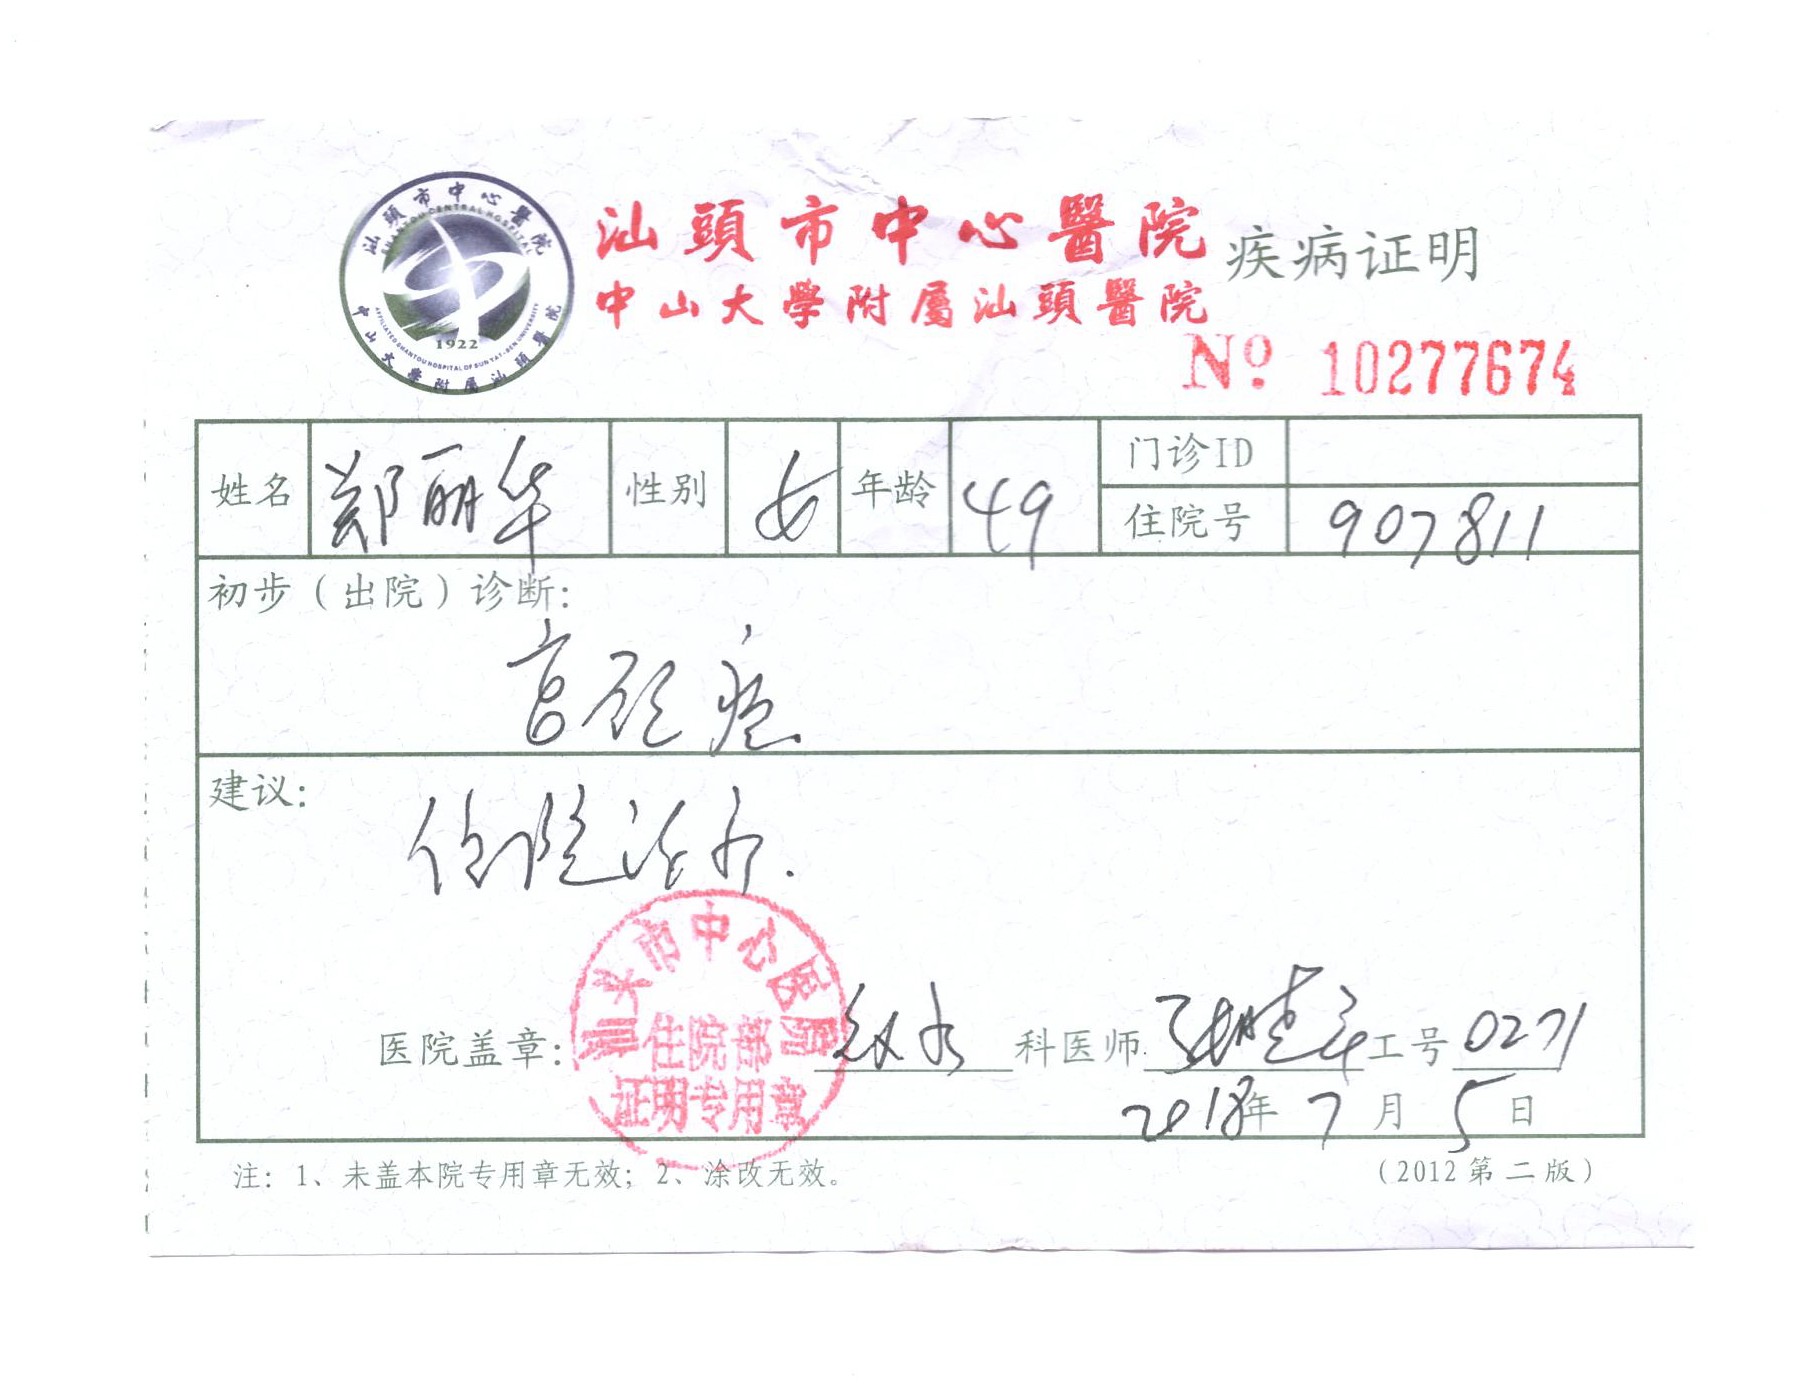 汕頭市中心醫院
SHANTOU CENTRAL HOSPITAL
1922
AFFILIATED SHANTOU HOSPITAL OF SUN YAT-SEN UNIVERSITY
中山大學附屬汕頭醫院
汕頭市中心醫院 疾病证明
中山大學附屬汕頭醫院
Nº 10277674
姓名 郑丽华 性别 女 年龄 49 门诊ID
住院号 907811
初步（出院）诊断：
宫颈癌
建议：
住院治疗.
汕头市中心医院
住院部
证明专用章
医院盖章： 放疗 科医师 工号 0271
2018年 7月 5日
注：1、未盖本院专用章无效；2、涂改无效。 （2012第二版）